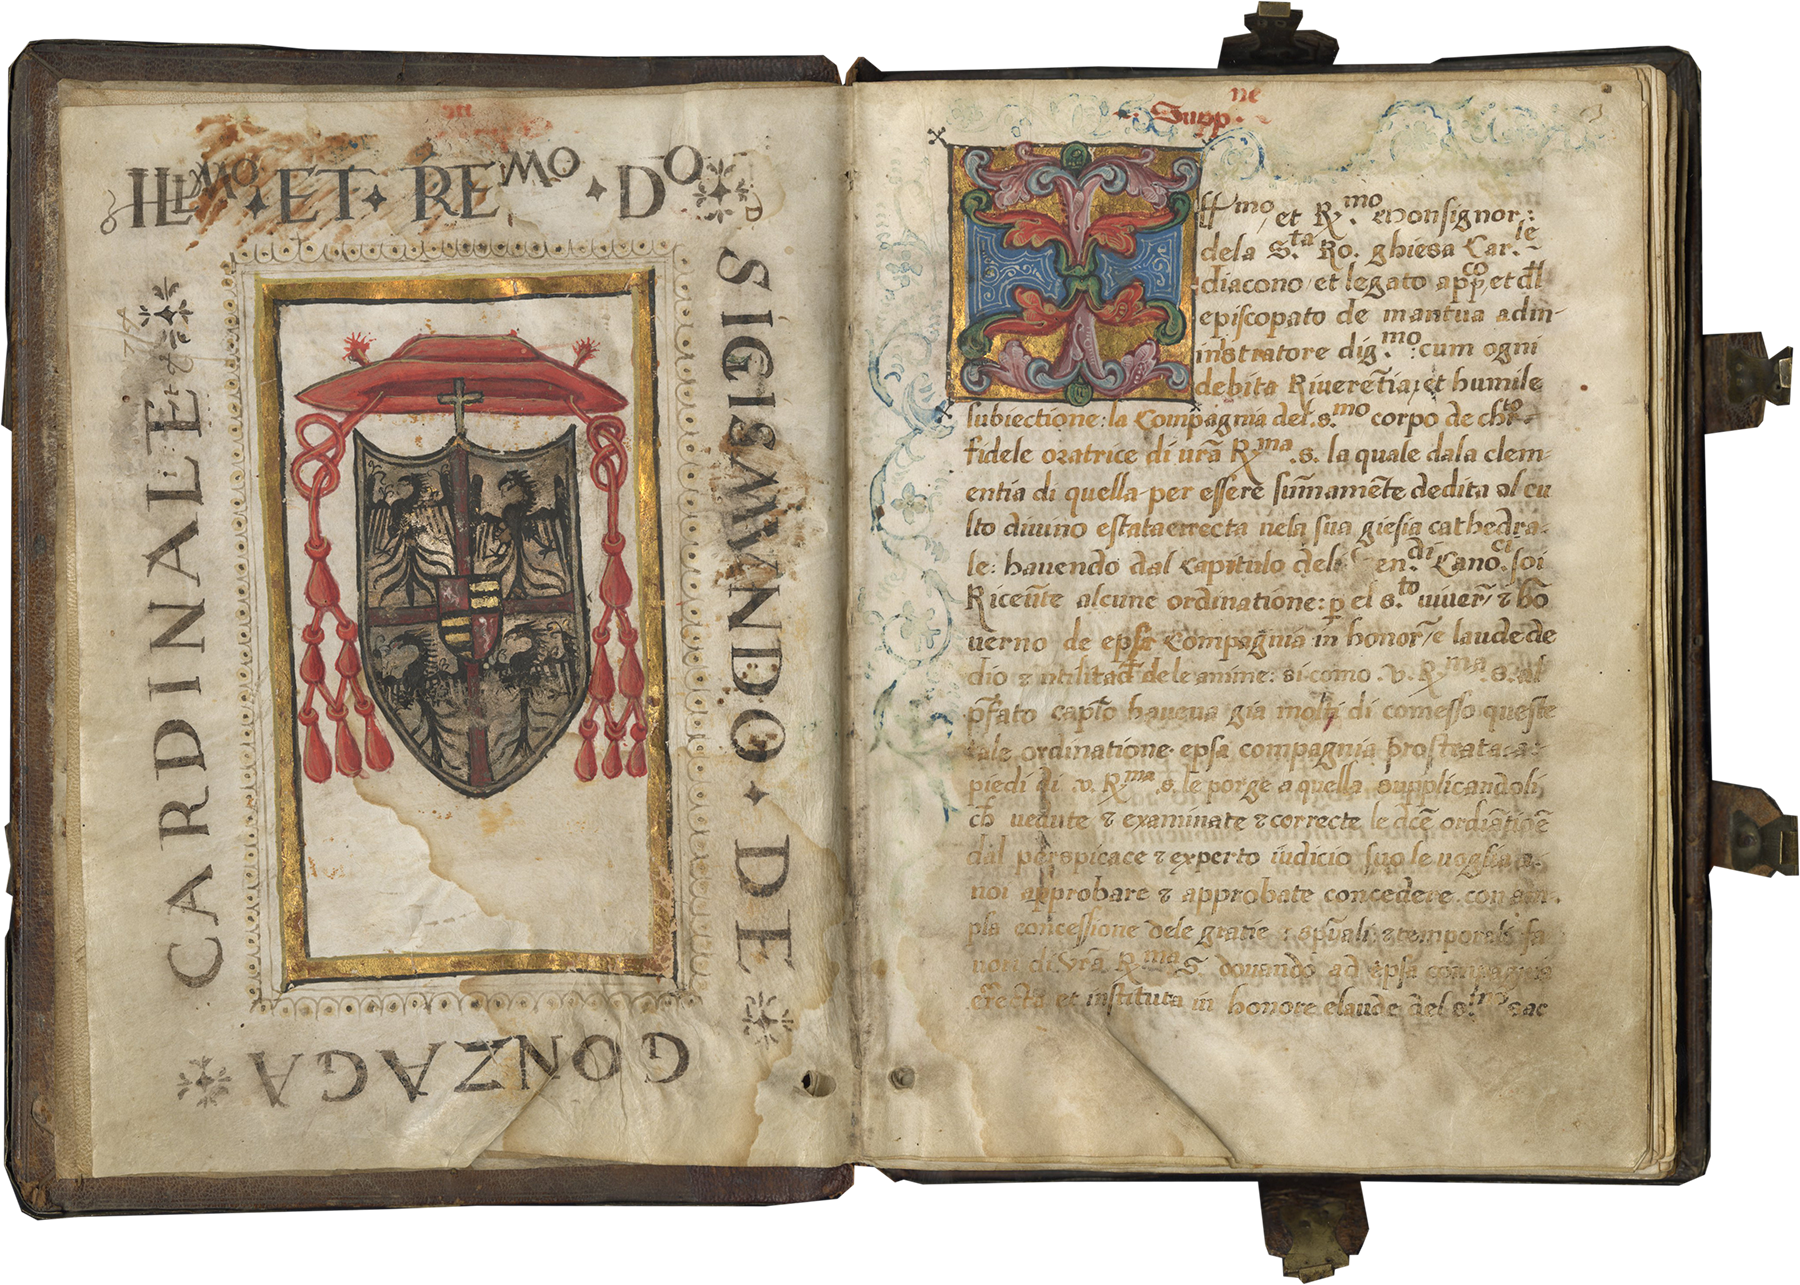 ILL.MO · ET · RE MO · DO
D
SIGISMVNDO · DE
GONZAGA
CARDINALE
ne
Supp
Illmo et Rmo Monsignor:
dela S.ta Ro. ghiesa Car.le
diacono et legato apco, et dl
episcopato de mantua admi-
nistratore dig.mo: cum ogni
debita Riverētia, et humile
subiectione: la Compagnia del .s.mo corpo de chro
fidele oratrice di vrā R.ma .s. la quale dala clem-
entia di quella per essere sum̄amēte dedita al cu
lto divino estata errecta nela sua giesia cathedra-
le: havendo dal Capitulo deli Ven.di Canoci soi
Ricevute alcune ordinatione: p el s.to viver, & go
verno de epsa Compagnia in honor, e laude de
dio & utilitad dele anime: si como .v. R.ma .s. al
pfato capto haveva gia molti di comesso queste
tale ordinatione. epsa compagnia prostrata a
piedi di .v. R.ma .s. le porge a quella supplicandoli,
ch vedute & examinate & correcte le dcē ordinatiōe
dal perspicace & experto iudicio suo le voglia
noi approbare & approbate concedere con am-
pla concessione dele gratie spūali & temporali fa
non di vrā R.ma S. donando ad epsa compagnia
errecta et instituta in honore e laude del s.mo sac